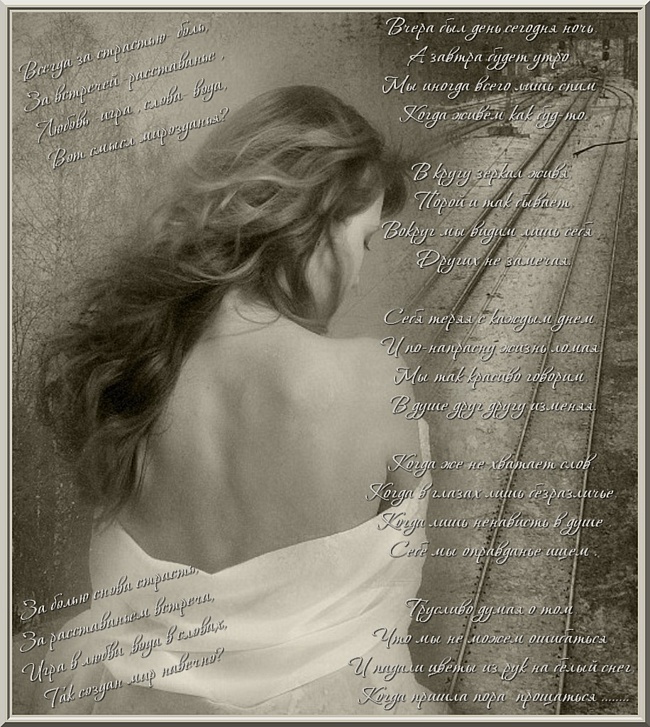 Всегда за страстью- боль,
За встречей расставанье ,
Любовь- игра , слова- вода,
Вот смысл мирозданья?
Вчера был день сегодня ночь
А завтра будет утро
Мы иногда всего лишь спим
Когда живём как буд-то.
В кругу зеркал живя
Порой и так бывает
Вокруг мы видим лишь себя
Других не замечая.
Себя теряя с каждым днем
И по-напрасну жизнь ломая
Мы так красиво говорим
В душе друг другу изменяя.
Когда же не хватает слов
Когда в глазах лишь безразличье
Когда лишь ненависть в душе
Себе мы оправданье ищем .
Трусливо думая о том
Что мы не можем ошибаться
И падали цветы из рук на белый снег
Когда пришла пора прощаться ........
За болью снова страсть,
За расставаньем встреча,
Игра в любви ,вода в словах,
Так создан мир навечно?